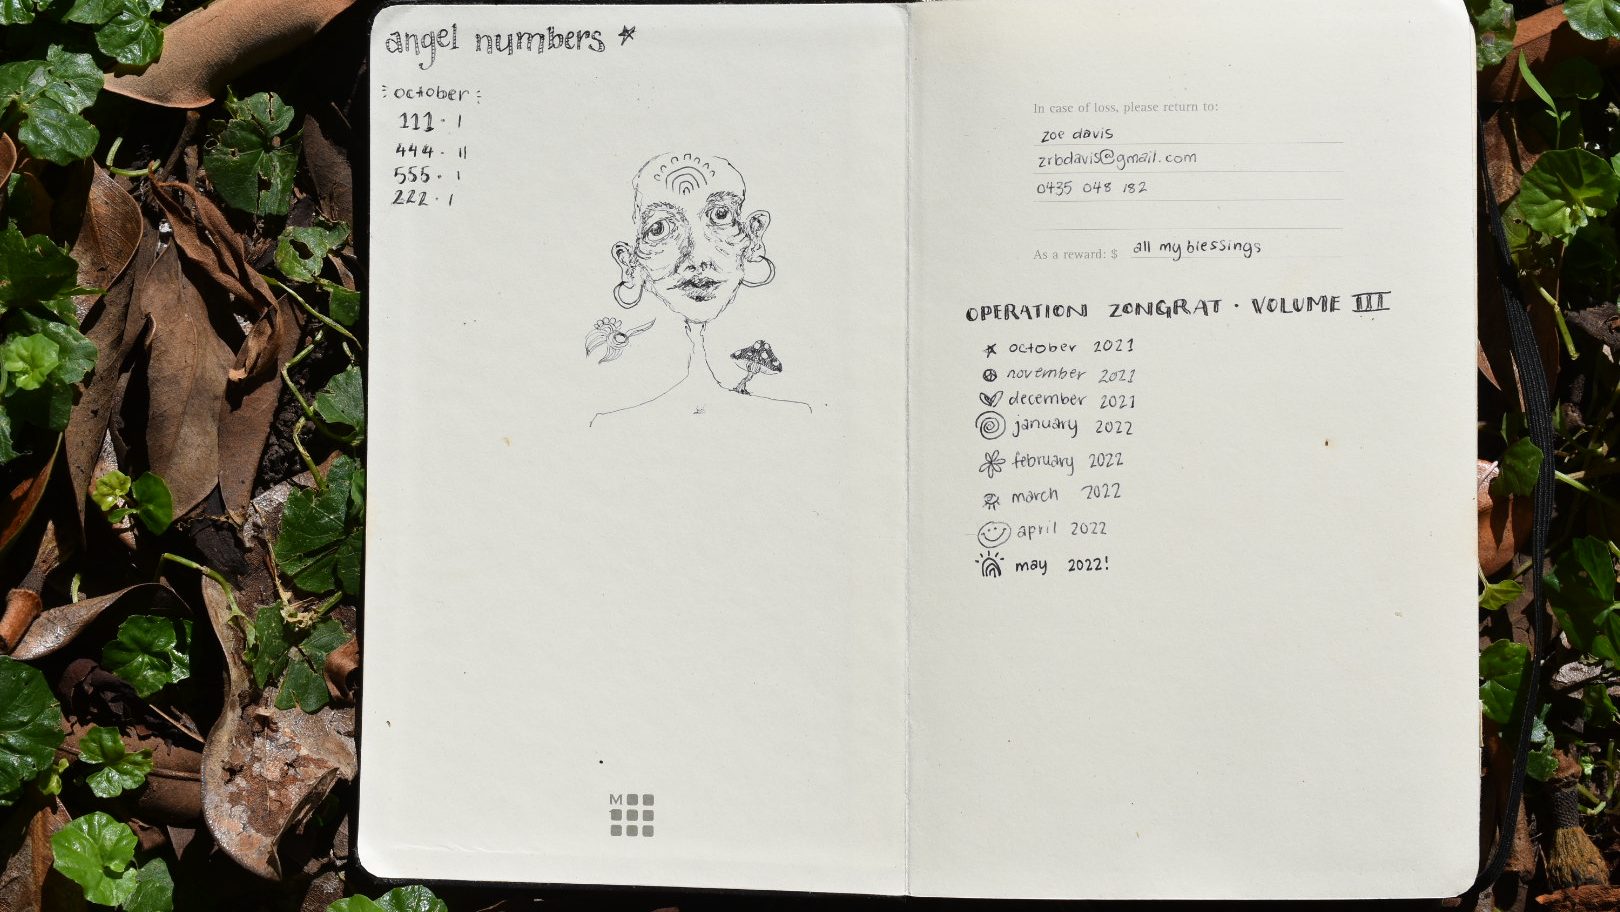 angel numbers
october
111 · I
444 · II
555 · I
222 · I
M
In case of loss, please return to:
zoe davis
zrbdavis@gmail.com
0435 048 182
As a reward: $ all my blessings
OPERATION ZONGRAT · VOLUME III
october 2021
november 2021
december 2021
january 2022
february 2022
march 2022
april 2022
may 2022!